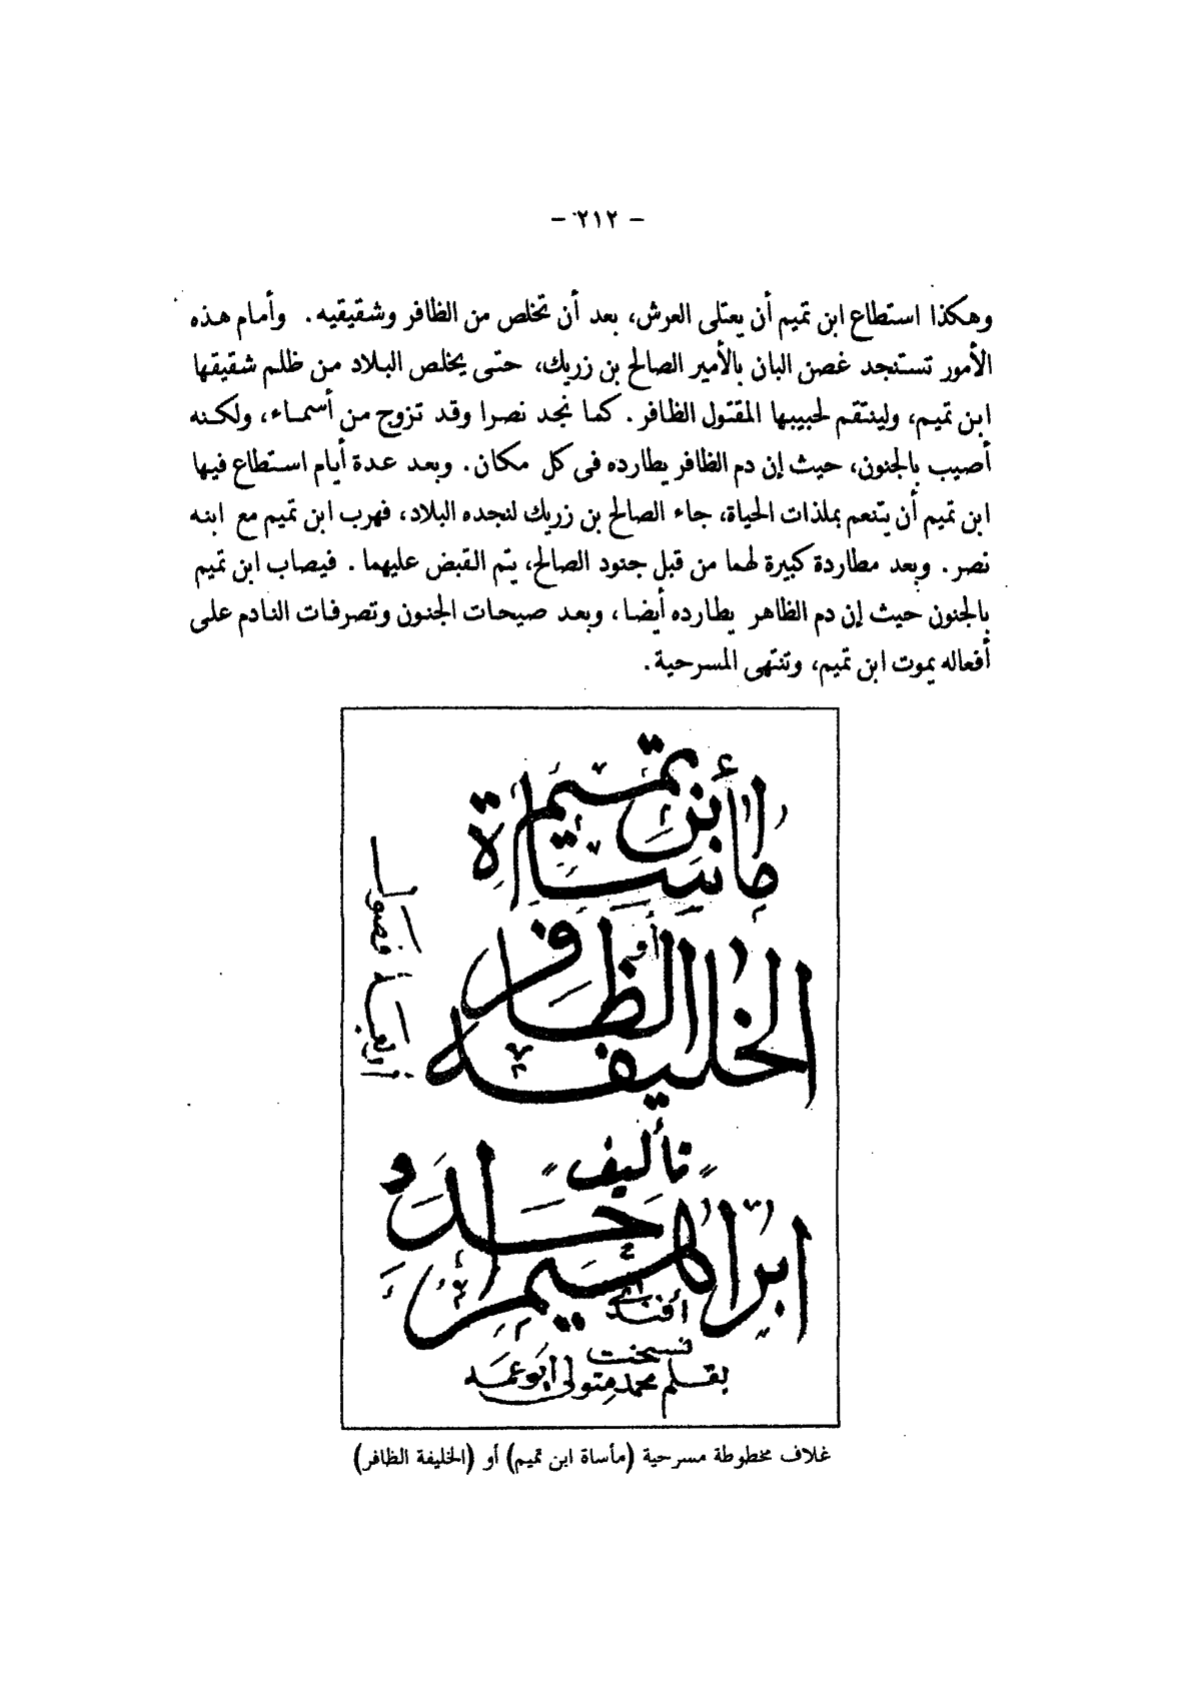 - ٢١٢ -
وهكذا استطاع ابن تميم أن يعتلى العرش، بعد أن تخلص من الظافر وشقيقيه. وأمام هذه
الأمور تستنجد غصن البان بالأمير الصالح بن زريك، حتى يخلص البلاد من ظلم شقيقها
ابن تميم، ولينتقم لحبيبها المقتول الظافر. كما نجد نصرا وقد تزوج من أسماء، ولكنه
أصيب بالجنون، حيث إن دم الظافر يطارده فى كل مكان. وبعد عدة أيام استطاع فيها
ابن تميم أن يتنعم بملذات الحياة، جاء الصالح بن زريك لنجده البلاد، فهرب ابن تميم مع ابنه
نصر. وبعد مطاردة كبيرة لهما من قبل جنود الصالح، يتم القبض عليهما. فيصاب ابن تميم
بالجنون حيث إن دم الظاهر يطارده أيضا، وبعد صيحات الجنون وتصرفات النادم على
أفعاله يموت ابن تميم، وتنتهى المسرحية.
مأساة ابن تميم
أو
الخليفه الظافر
أربعة فصول
تأليف
ابراهيم خالد
أفندى
نسخت
بقلم محمد متولى ابو عمه
غلاف مخطوطة مسرحية (مأساة ابن تميم) أو (الخليفة الظافر)